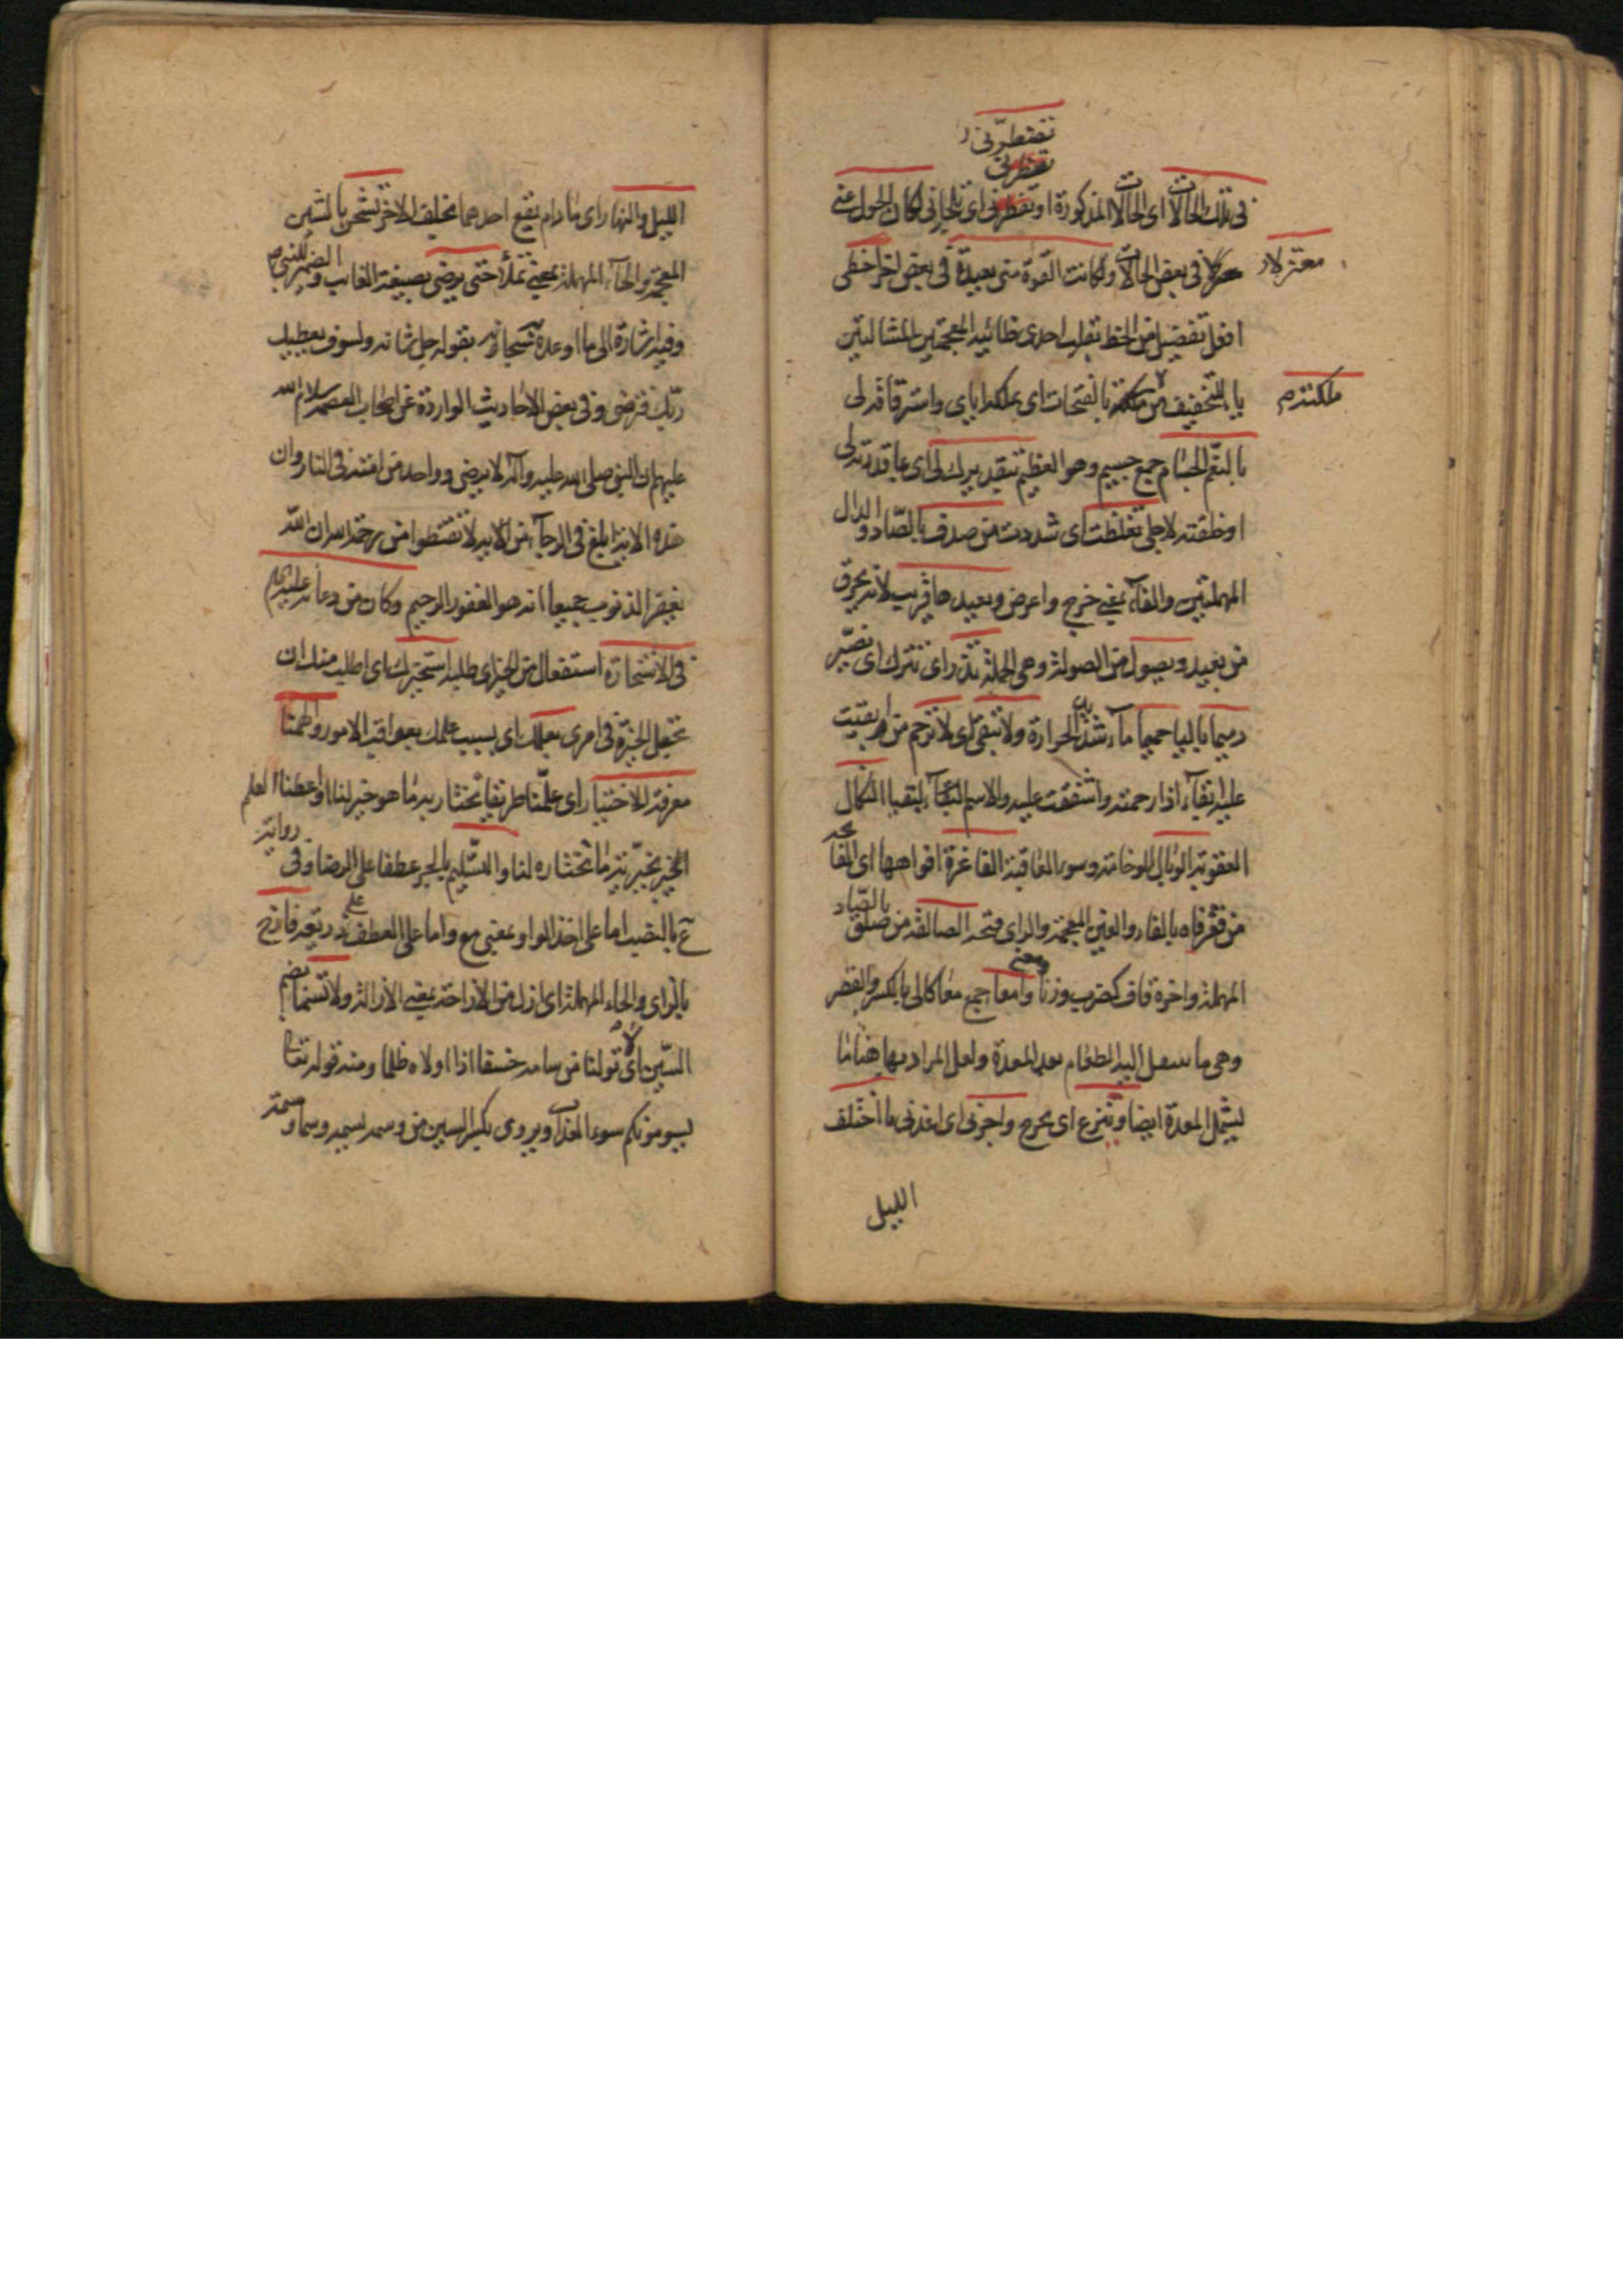 تضطرّنی
تضطرنی
فی تلك الحالات ای الحالات المذكورة او تضطرنی ای تلجانی لكان الحول عنی
معتزلا
فی بعض الحالات ولكانت القوة منی بعیدة فی بعض اخر احظی
افعل تفضیل من الحظ بقلب احدی ظائیه المعجمتین المشالتین
یا بالتخفیف من ملكته بالفتحات ای تملكه ایای واسترقاقه لی
ملكتدم
بالنعم الجسام جمع جسیم وهو العظیم بتقدیرك لی ای بما قدرته لی
او خلقته لاجلی تغلظت ای شددت من صدف بالصاد والدال
المهملتین والفاء بمعنی خرج واعرض وبعیدها قریب لانه یحرق
من بعید ویصول من الصولة وهی الحملة تذر ای تترك ای تصیّر
رمیما بالیا حمیما ماء شدید الحرارة ولا تبقی ای لا ترحم من ابقیت
علیه ابقاء اذا رحمته واشفقت علیه والاسم البقیا النكال
العقوبة الوبال الوخامة وسوء العاقبة الفاغرة افواهها ای الفاتحة
من فغر فاه بالفاء والغین المعجمة والرای فتحه الصالقة من صلق بالصّاد
المهملة واخره قاف كضرب وزنا ومعنی وامعا جمع معا كالی بالكسر والقصر
وهی ما ینتقل الیه الطعام بعد المعدة ولعل المراد بها هنا ما
یشمل المعدة ایضا وتنزع ای یخرج واجرنی ای اعذنی ما اختلف
اللیل
اللیل والنهار ای ما دام یقع احدهما بخلف الاخر تشحن بالشین
المعجمة والحاء المهملة بمعنی تملأ حتی یرضی بصیغة الغائب والضمیر للنبی ص
وفیه اشارة الی ما اوعده سبحانه بقوله جل شانه ولسوف یعطیك
ربّك فترضی وفی بعض الاحادیث الواردة عن اصحاب العصمة سلام الله
علیهم ان النبی صلی الله علیه وآله لا یرضی وواحد من امته فی النار وان
هذه الایة ابلغ فی الرجاء من الایة لا تقنطوا من رحمة الله ان اللّه
یغفر الذنوب جمیعا انه هو الغفور الرحیم وكان من دعائه علیه السلام
فی الاستخارة استفعال من الخیر ای طلبه استخیرك ای اطلب منك ان
تجعل الخیرة فی امری بعلمك ای بسبب علمك بعواقب الامور والهمنا
معرفة الاختیار ای علّمنا طریقا نختار به ما هو خیر لنا او اعطنا العلم
الخیر بخیّریة ما تختاره لنا والتسلیم بالجر عطفا علی الرضا وفی روایة
ع بالنصب اما علی اخذ الواو بمعنی مع واما علی العطف علی ذریعة فازح
بالزای والحاء المهملة ای ازل من الازاحة بمعنی الازالة ولا تسمنا بضم
السّین ای لا تولنا من سامه خسفا اذا اولاه ظلما ومنه قوله تعالی
یسومونكم سوء العذاب ویروی بكسر السین من وسمه یسمه وسما وسمة